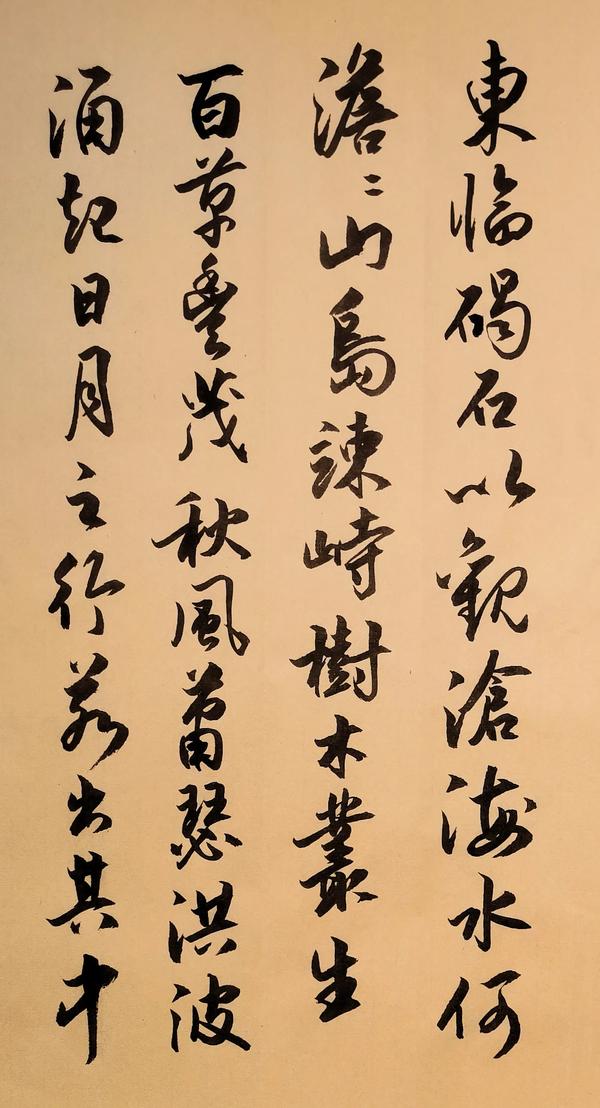 東臨碣石以觀滄海水何
澹〻山島竦峙樹木叢生
百草豐茂秋風蕭瑟洪波
涌起日月之行若出其中